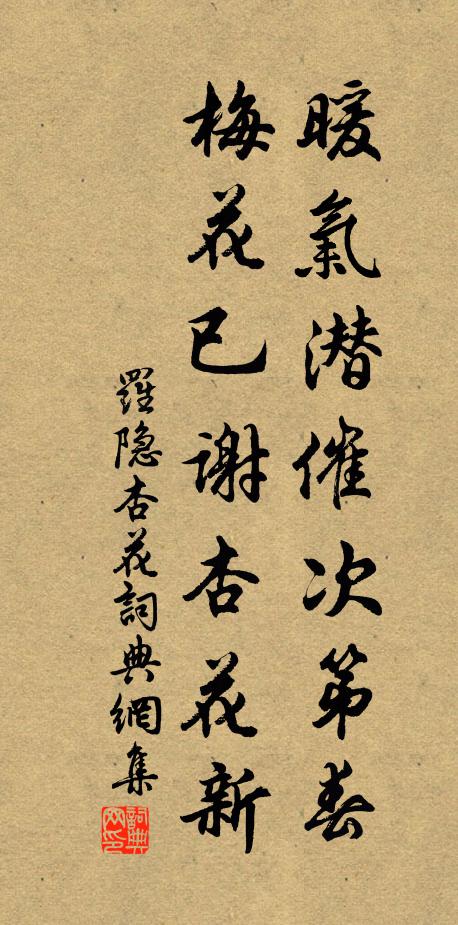 暖氣潜催次第春
梅花已谢杏花新
羅隐杏花詞典網集
詞典网印